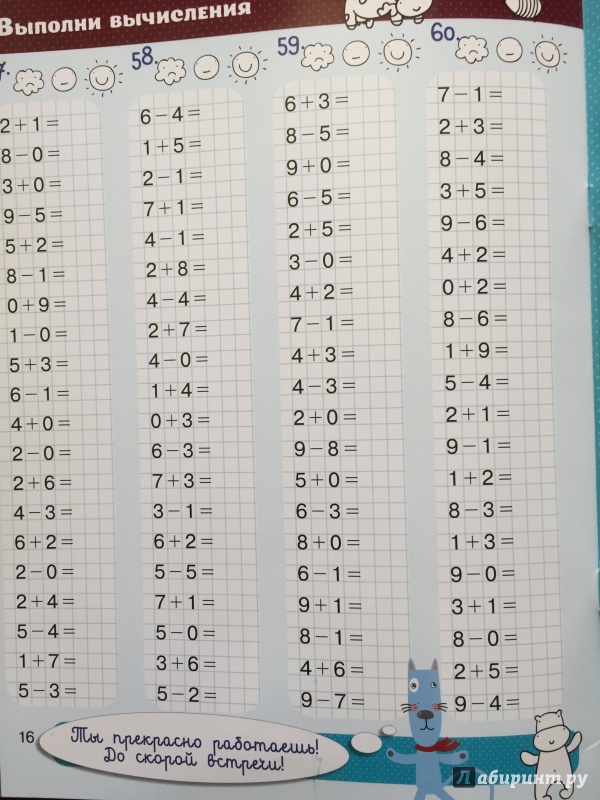 Выполни вычисления
7.
2+1=
8-0=
3+0=
9-5=
5+2=
8-1=
0+9=
1-0=
5+3=
6-1=
4+0=
2-0=
2+6=
4-3=
6+2=
2-0=
2+4=
5-4=
1+7=
5-3=
58.
6-4=
1+5=
2-1=
7+1=
4-1=
2+8=
4-4=
2+7=
4-0=
1+4=
0+3=
6-3=
7+3=
3-1=
6+2=
5-5=
7+1=
5-0=
3+6=
5-2=
59.
6+3=
8-5=
9+0=
6-5=
2+5=
3-0=
4+2=
7-1=
4+3=
4-3=
2+0=
9-8=
5+0=
6-3=
8+0=
6-1=
9+1=
8-1=
4+6=
9-7=
60.
7-1=
2+3=
8-4=
3+5=
9-6=
4+2=
0+2=
8-6=
1+9=
5-4=
2+1=
9-1=
1+2=
8-3=
1+3=
9-0=
3+1=
8-0=
2+5=
9-4=
16
Ты прекрасно работаешь!
До скорой встречи!
Лабиринт.ру